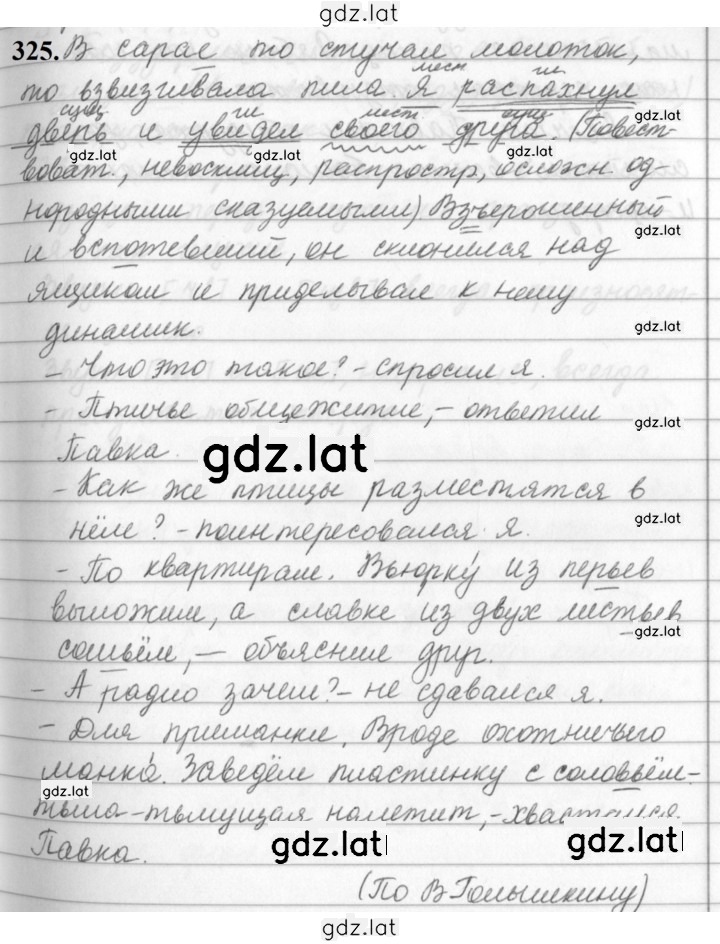 gdz.lat
325. В сарае то стучал молоток,
мест гл
то взвизгивала пила. Я распахнул
сущ гл мест сущ
gdz.lat
дверь и увидел своего друга. (Повест-
gdz.lat gdz.lat gdz.lat
воват., невосклиц, распростр, осложн од-
нородными сказуемыми) Взъерошенный
gdz.lat
и вспотевший, он склонился над
ящиком и приделывал к нему
динамик.
gdz.lat
- Что это такое? - спросил я.
- Птичье общежитие, - ответил
gdz.lat
Павка.
gdz.lat
- Как же птицы разместятся в
нём? - поинтересовался я.
gdz.lat
- По квартирам. Вьюрку́ из перьев
выложим, а славке из двух листьев
gdz.lat
сошьём, — объяснил друг.
- А радио зачем? - не сдавался я.
- Для приманки. Вроде охотничьего
манка́. Заведём пластинку с соловьём-
gdz.lat
тьма-тьмущая налетит, - хвастался
Павка.
gdz.lat gdz.lat
(По В Голышкину)
gdz.lat